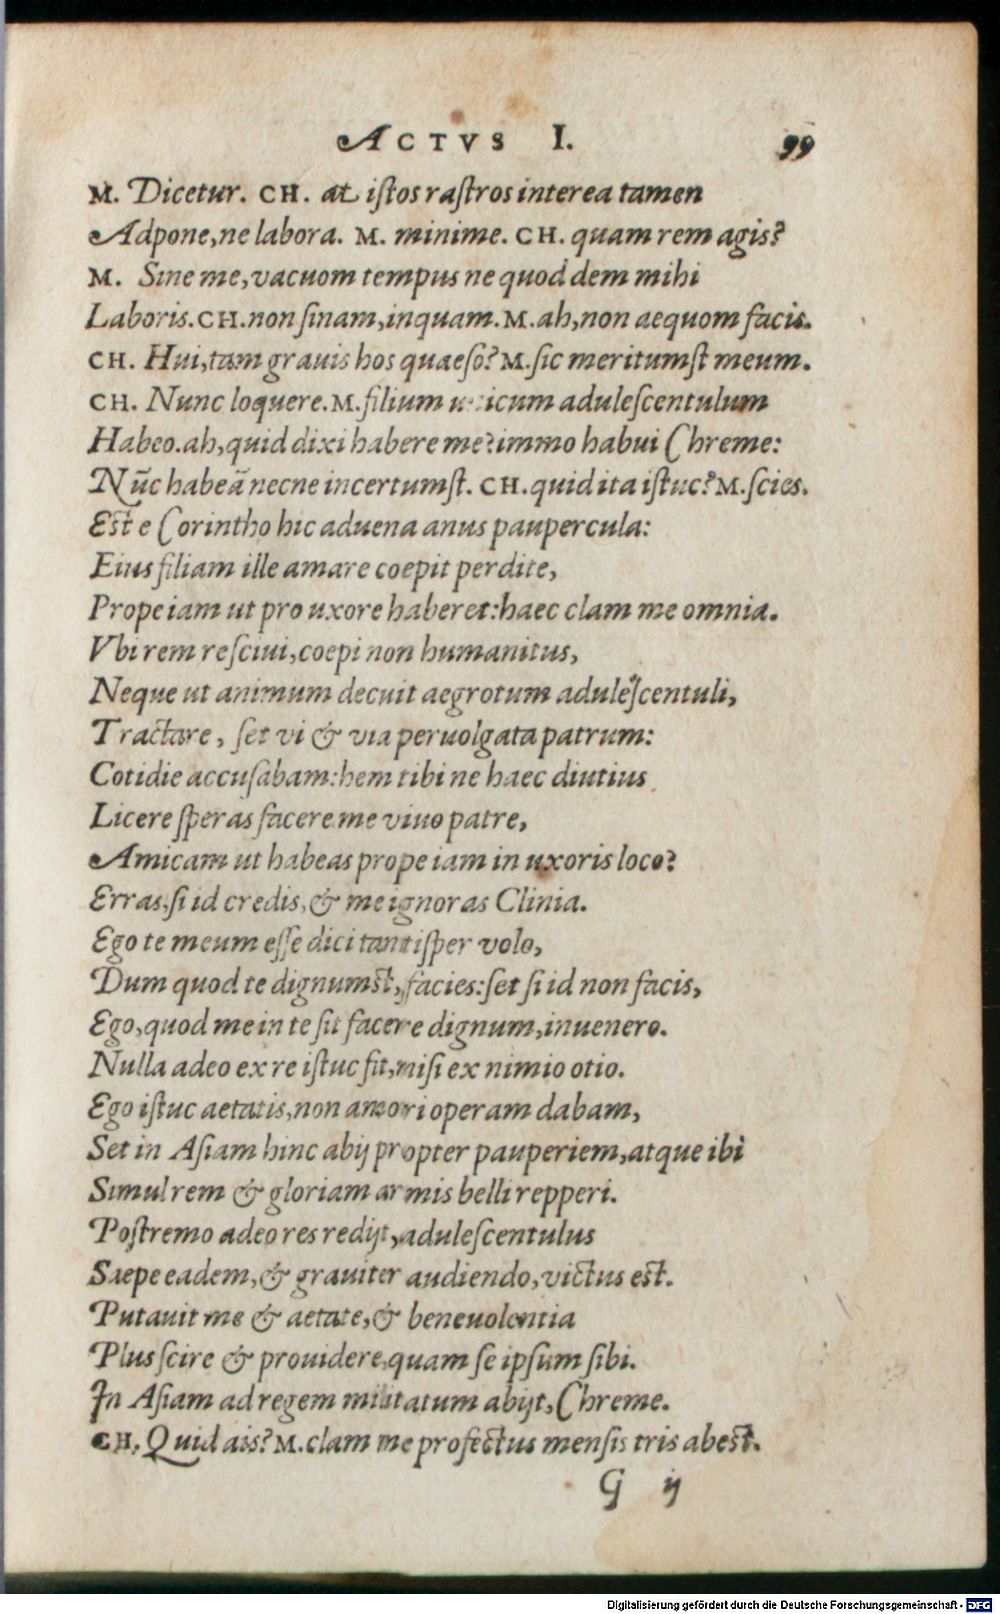 ACTVS I. 99
M. Dicetur. CH. at iſtos raſtros interea tamen
Adpone, ne labora. M. minime. CH. quam rem agis?
M. Sine me, vacuom tempus ne quod dem mihi
Laboris. CH. non ſinam, inquam. M. ah, non aequom facis.
CH. Hui, tam grauis hos quaeſo? M. ſic meritumſt meum.
CH. Nunc loquere. M. filium unicum aduleſcentulum
Habeo. ah, quid dixi habere me? immo habui Chreme:
Nūc habeā necne incertumſt. CH. quid ita iſtuc? M. ſcies.
Eſt e Corintho hic aduena anus paupercula:
Eius filiam ille amare coepit perdite,
Prope iam ut pro uxore haberet: haec clam me omnia.
Vbi rem reſciui, coepi non humanitus,
Neque ut animum decuit aegrotum aduleſcentuli,
Tractare, ſet vi & via peruolgata patrum:
Cotidie accuſabam: hem tibi ne haec diutius
Licere ſperas facere me viuo patre,
Amicam ut habeas prope iam in uxoris loco?
Erras, ſi id credis, & me ignoras Clinia.
Ego te meum eſſe dici tantiſper volo,
Dum quod te dignumſt, facies: ſet ſi id non facis,
Ego, quod me in te ſit facere dignum, inuenero.
Nulla adeo ex re iſtuc fit, niſi ex nimio otio.
Ego iſtuc aetatis, non amori operam dabam,
Set in Aſiam hinc abij propter pauperiem, atque ibi
Simul rem & gloriam armis belli repperi.
Poſtremo adeo res redijt, aduleſcentulus
Saepe eadem, & grauiter audiendo, victus eſt.
Putauit me & aetate, & beneuolentia
Plus ſcire & prouidere, quam ſe ipſum ſibi.
In Aſiam ad regem militatum abijt, Chreme.
CH. Quid ais? M. clam me profectus menſis tris abeſt.
G ij
Digitalisierung gefördert durch die Deutsche Forschungsgemeinschaft - DFG